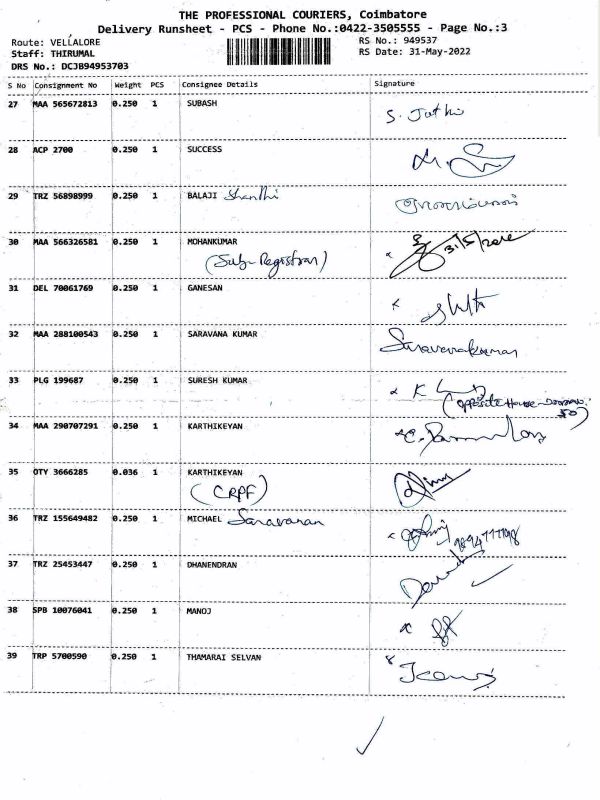 THE PROFESSIONAL COURIERS, Coimbatore
Delivery Runsheet - PCS - Phone No.:0422-3505555 - Page No.:3
Route: VELLALORE
RS No.: 949537
Staff: THIRUMAL
RS Date: 31-May-2022
DRS No.: DCJB94953703
S No Consignment No Weight PCS Consignee Details Signature
27 MAA 565672813 0.250 1 SUBASH
28 ACP 2700 0.250 1 SUCCESS
29 TRZ 56898999 0.250 1 BALAJI Shanthi
30 MAA 566326581 0.250 1 MOHANKUMAR
(Sub-Registrar)
31 DEL 70061769 0.250 1 GANESAN
32 MAA 288100543 0.250 1 SARAVANA KUMAR Saravanakumar
33 PLG 199687 0.250 1 SURESH KUMAR
34 MAA 290707291 0.250 1 KARTHIKEYAN
35 OTY 3666285 0.036 1 KARTHIKEYAN
(CRPF)
36 TRZ 155649482 0.250 1 MICHAEL Saravanan
37 TRZ 25453447 0.250 1 DHANENDRAN
38 SPB 10076041 0.250 1 MANOJ
39 TRP 5700590 0.250 1 THAMARAI SELVAN